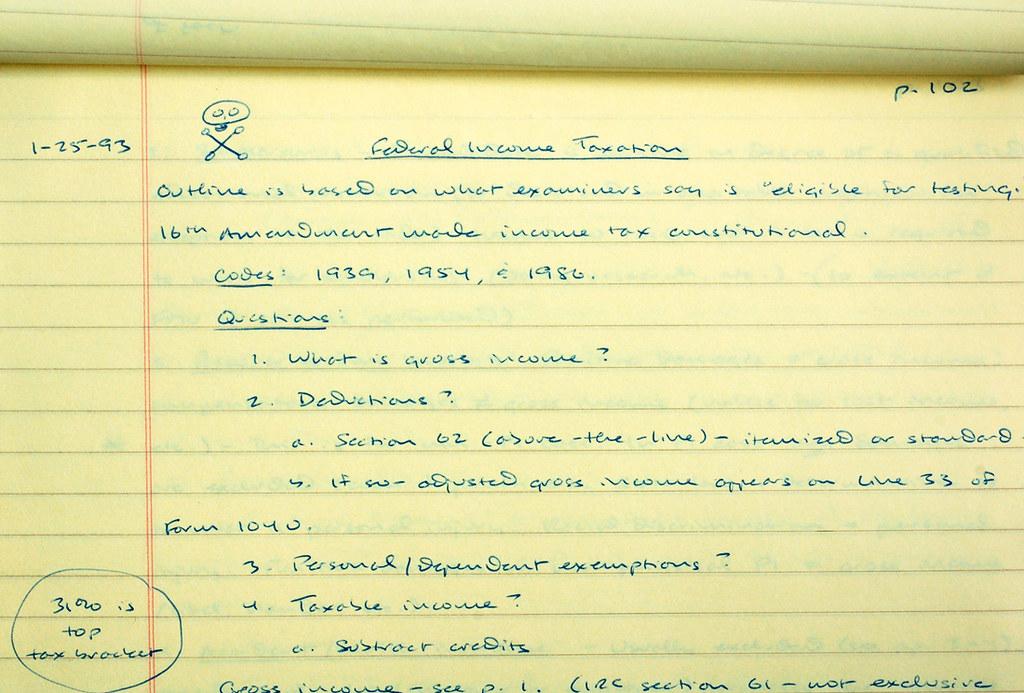 p. 102
1-25-93
Federal Income Taxation
Outline is based on what examiners say is "eligible for testing."
16th Amendment made income tax constitutional.
Codes: 1939, 1954, & 1986.
Questions:
1. What is gross income?
2. Deductions?
a. Section 62 (above-the-line) - itemized or standard -
b. If so - adjusted gross income appears on line 33 of
Form 1040.
3. Personal/dependent exemptions?
4. Taxable income?
a. Subtract credits
31% is
top
tax bracket
Gross income - see p. 1. (IRC section 61 - not exclusive